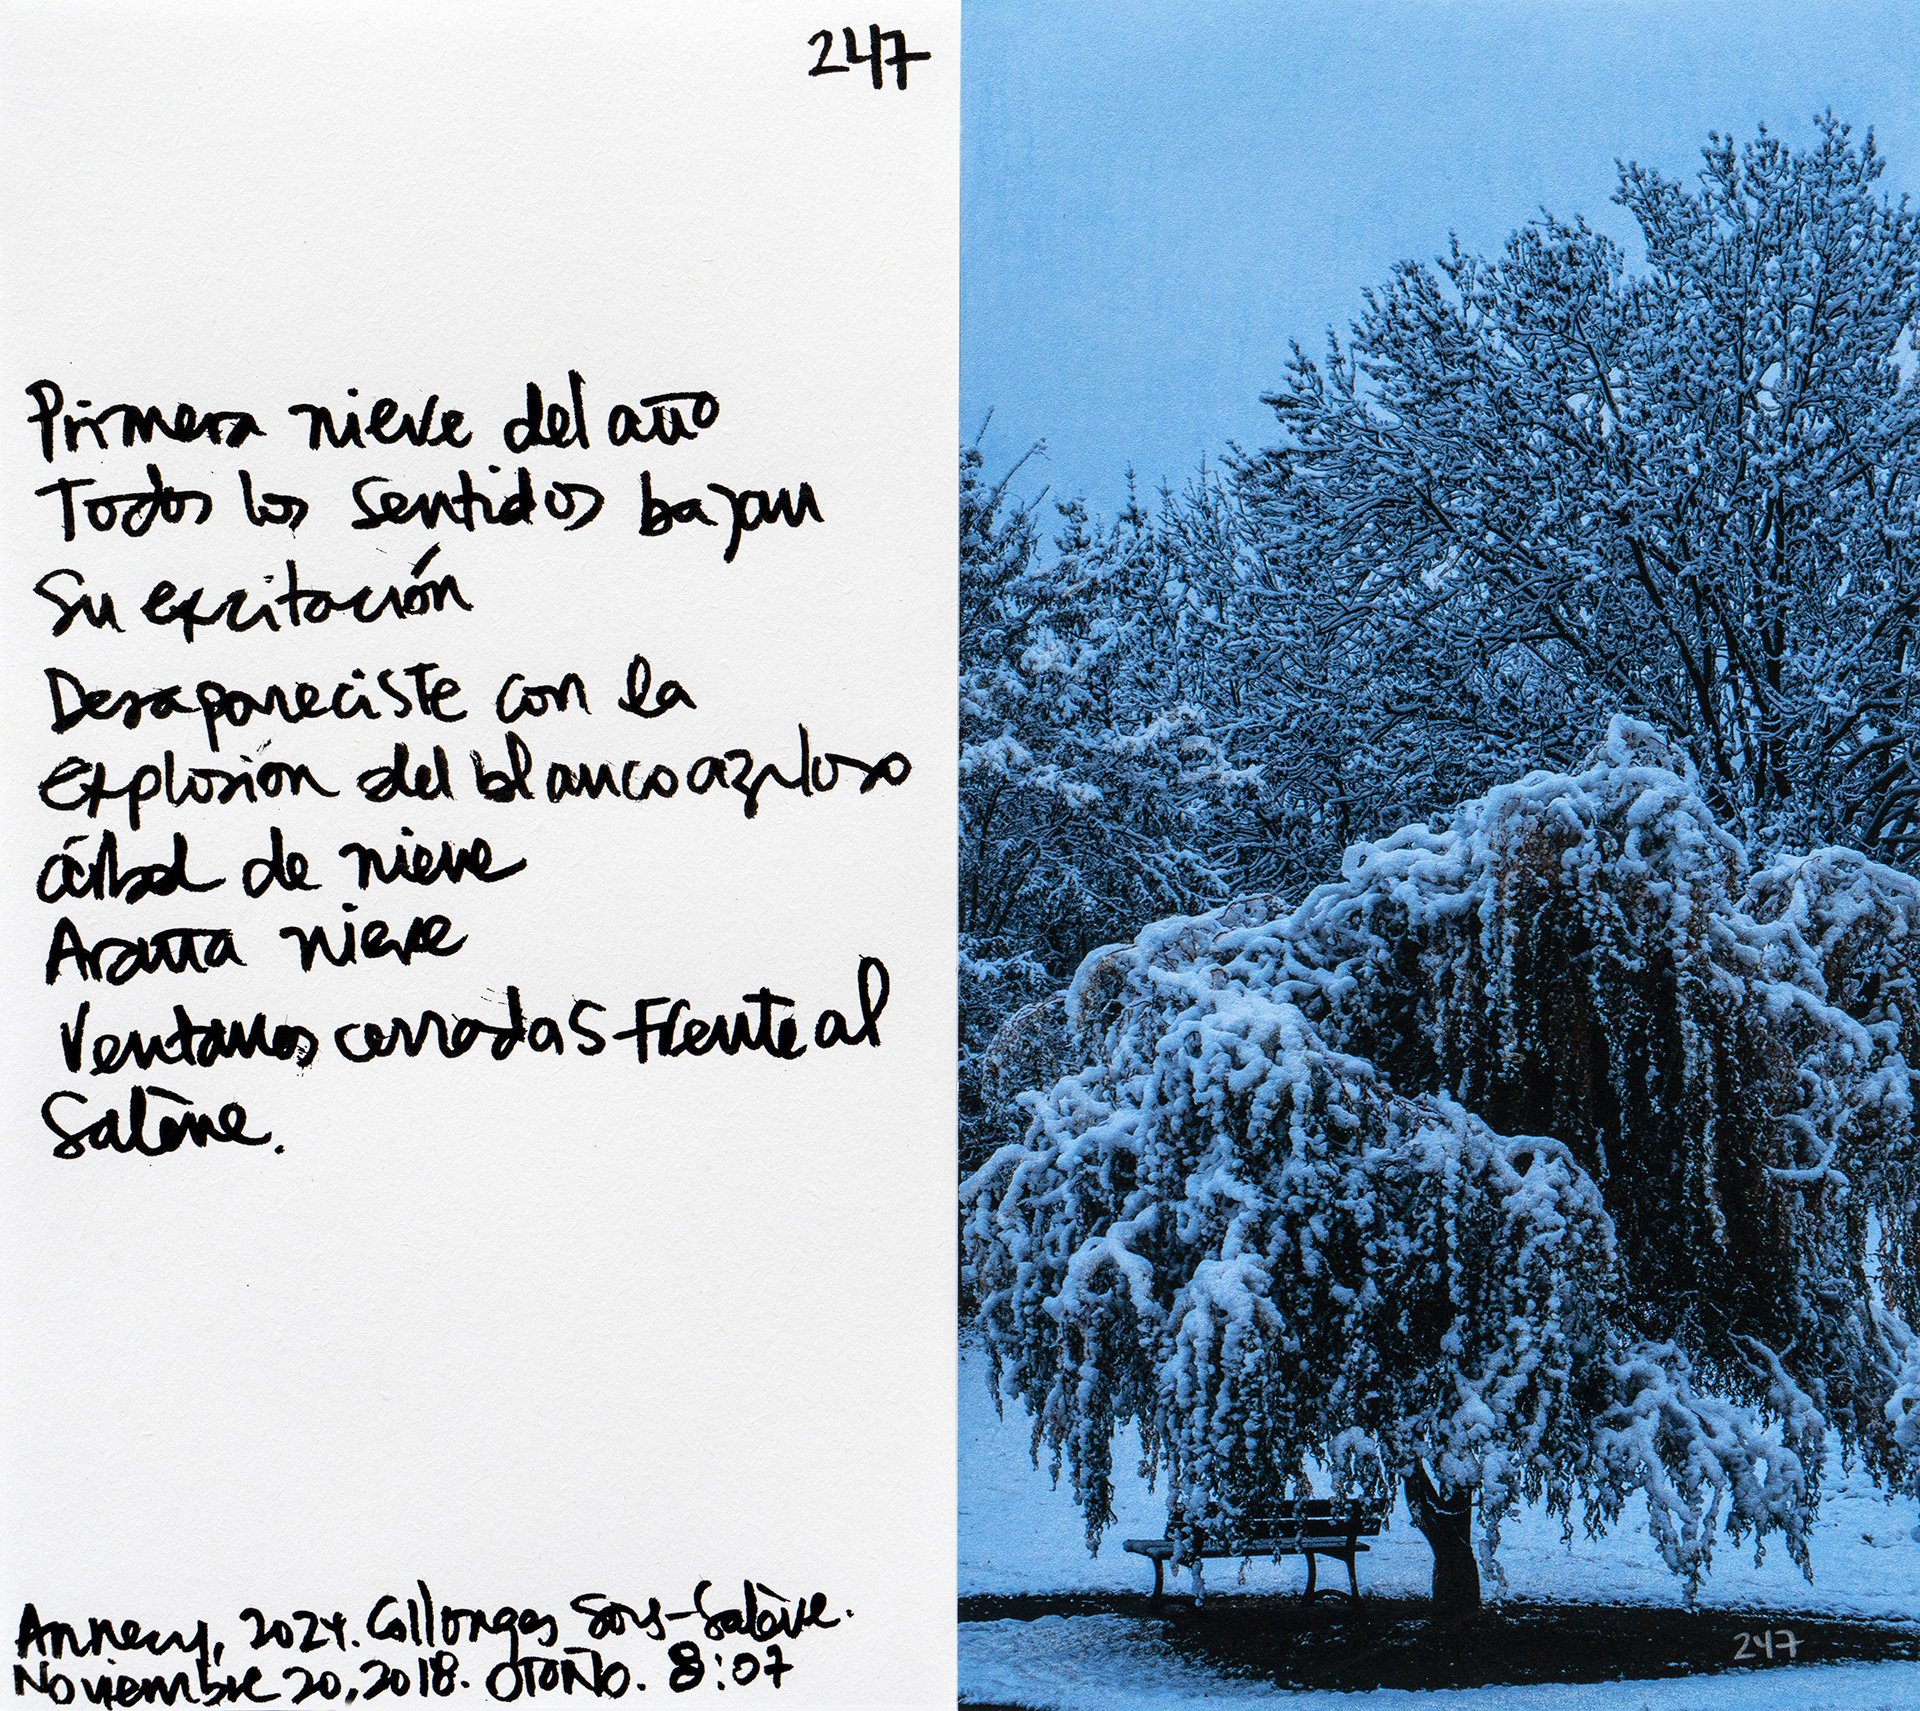 247
Primera nieve del año
Todos los sentidos bajan
Su excitación
Desapareciste con la
explosión del blanco azuloso
árbol de nieve
Araña nieve
Ventanas cerradas frente al
Salève.
Annecy, 2024. Collonges Sous-Salève.
Noviembre 20, 2018. OTOÑO. 8:07
247